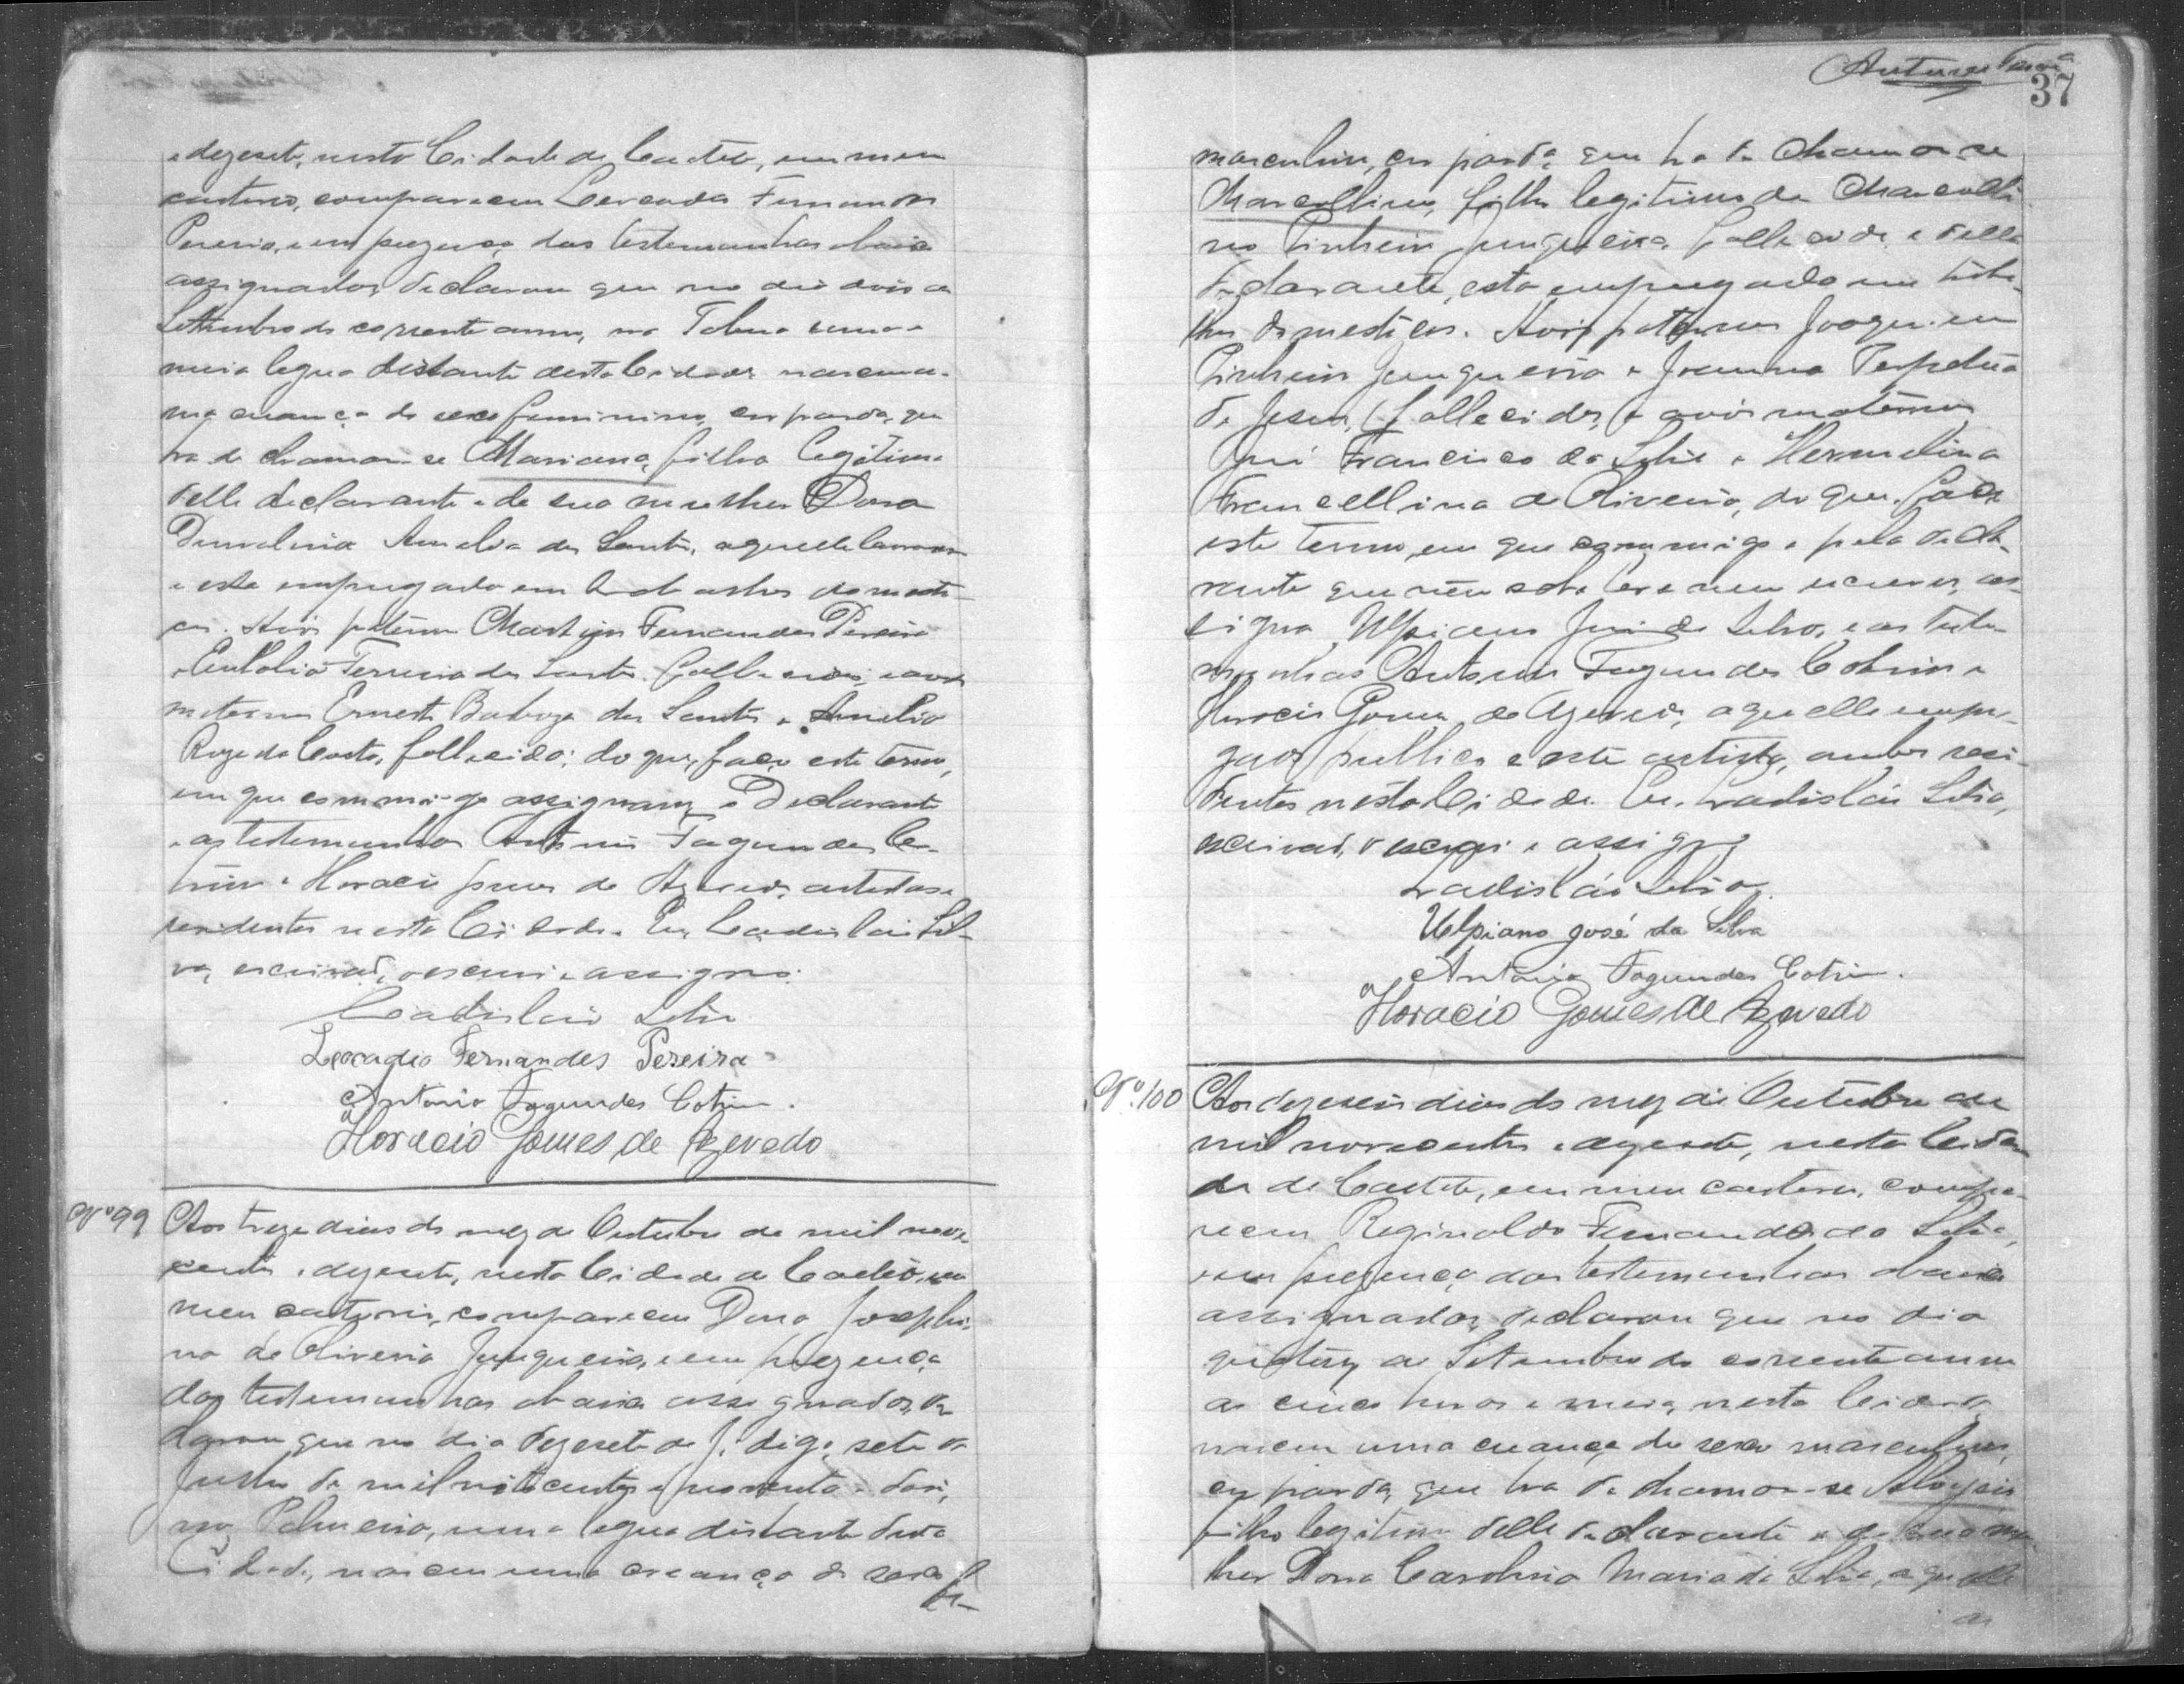 e dezesete, nesta Cidade de Caeteté, em meu
cartorio, compareceu Leocadio Fernandes
Pereira, e em prezença das testemunhas abaixo
assignadas, declarou que no dia dois de
Settembro do corrente anno, no        uma e
meia legua distante desta Cidade nasceu u-
ma creança do sexo feminino, cor parda, que
ha de chamar-se Mariana, filha legitima
delle declarante e de sua mulher Dona
Amelia dos Santos, aquelle lavrador
e esta empregada em trabalhos domesti-
cos. Avós paternos Martins Fernandes Pereira
e Eulalia Ferreira dos Santos, fallecidos, e avós
maternos Ernesto Barboza dos Santos e Amelia
Roza da Costa, fallecida; do que, faço este termo,
em que commigo assignam, o Declarante
e as testemunhas Antonio Fagundes Co-
trim e Horacio Gomes de Azevedo, artistas e
residentes nesta Cidade. Eu, Ladisláu Sil-
va, escrivão, o escrevi e assigno.
Ladisláu Silva
Leocadio Fernandes Pereira
Antonio Fagundes Cotrim.
Horacio Gomes de Azevedo
Nº 99 Aos treze dias do mez de Outubro de mil nove-
centos e dezesete, nesta Cidade de Caeteté, em
meu cartorio, compareceu Dona Josephi-
na de Oliveira Junqueira, e em prezença
das testemunhas abaixo assignadas, de-
clarou que no dia dezesete de J. digo, sete de
Julho de mil oitocentos e noventa e dois,
na Palmeira, uma legua distante desta
Cidade, nasceu uma creança do sexo
Antunes
37
masculino, cor parda, que ha de chamar-se
Marcellino, filho legitimo de Marcelli-
no Pinheiro Junqueira, fallecido, e della
declarante, esta empregada em traba-
lhos domesticos. Avós paternos Joaquim
Pinheiro Junqueira e Joanna Perpetua
de Jesus, fallecidos, e avós maternos
José Francisco da Silva e Hermelina
Francellina de Oliveira, do que, faço
este termo, em que commigo e pela decla-
rante que não sabe ler e nem escrever, as-
signa Ulpiano José da Silva, e as teste-
munhas Antonio Fagundes Cotrim e
Horacio Gomes de Azevedo, aquelle empre-
gado publico e este artista, ambos resi-
dentes nesta Cidade. Eu, Ladisláu Silva,
escrivão, o escrevi e assigno
Ladisláu Silva.
Ulpiano José da Silva
Antonio Fagundes Cotrim.
Horacio Gomes de Azevedo
Nº 100 Aos dezeseis dias do mez de Outubro de
mil novecentos e dezesete, nesta Cida-
de de Caeteté, em meu cartorio, compa-
receu Reginaldo Fernandes da Silva,
e em prezença das testemunhas abaixo
assignadas, declarou que no dia
quatorze de Setembro do corrente anno
as cinco horas e meia, nesta Cidade,
nasceu uma creança do sexo masculino,
cor parda, que ha de chamar-se Aloysio
filho legitimo delle declarante e de sua mu-
lher Dona Carolina Maria da Silva, aquelle